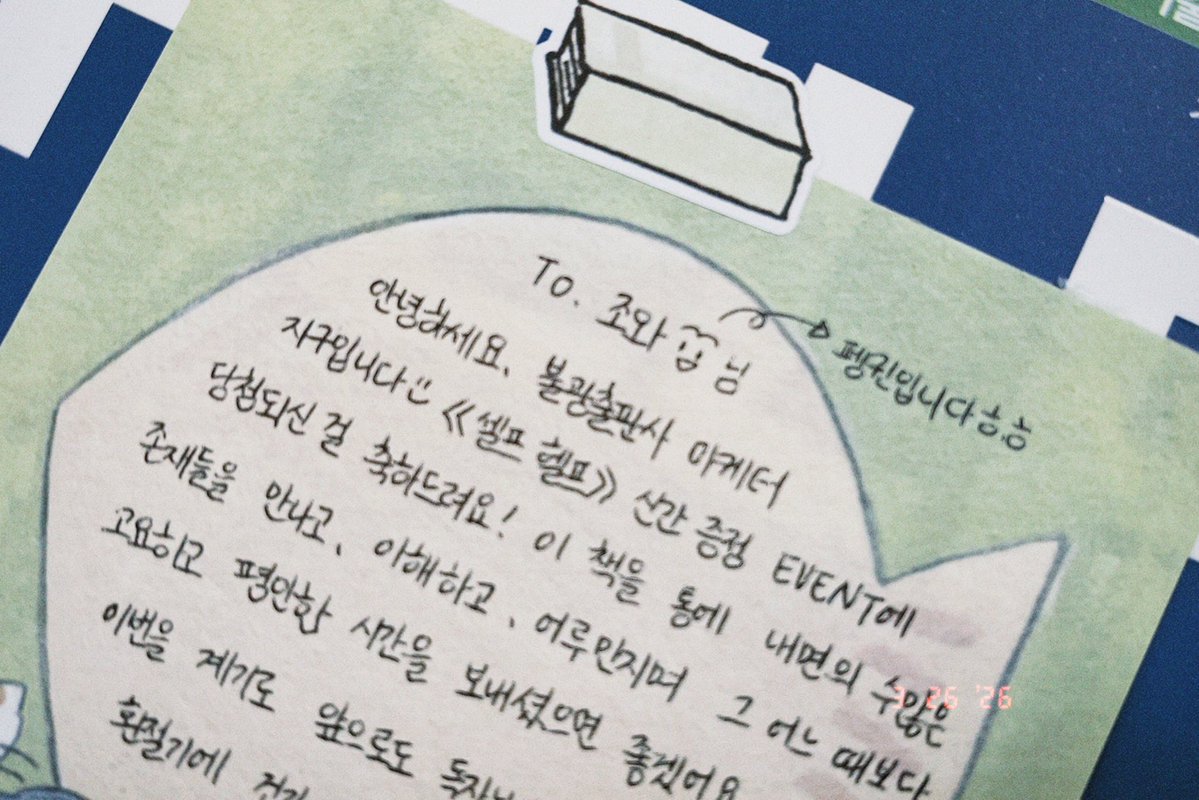 To. 조와 님
펭귄입니다 ㅎㅎ
안녕하세요, 불광출판사 마케터
지구입니다 《셀프 헬프》 신간 증정 EVENT에
당첨되신 걸 축하드려요! 이 책을 통해 내면의 수많은
존재들을 만나고, 이해하고, 어루만지며 그 어느 때보다
고요하고 평안한 시간을 보내셨으면 좋겠어요
이번을 계기로 앞으로도
환절기에
3 26 '26